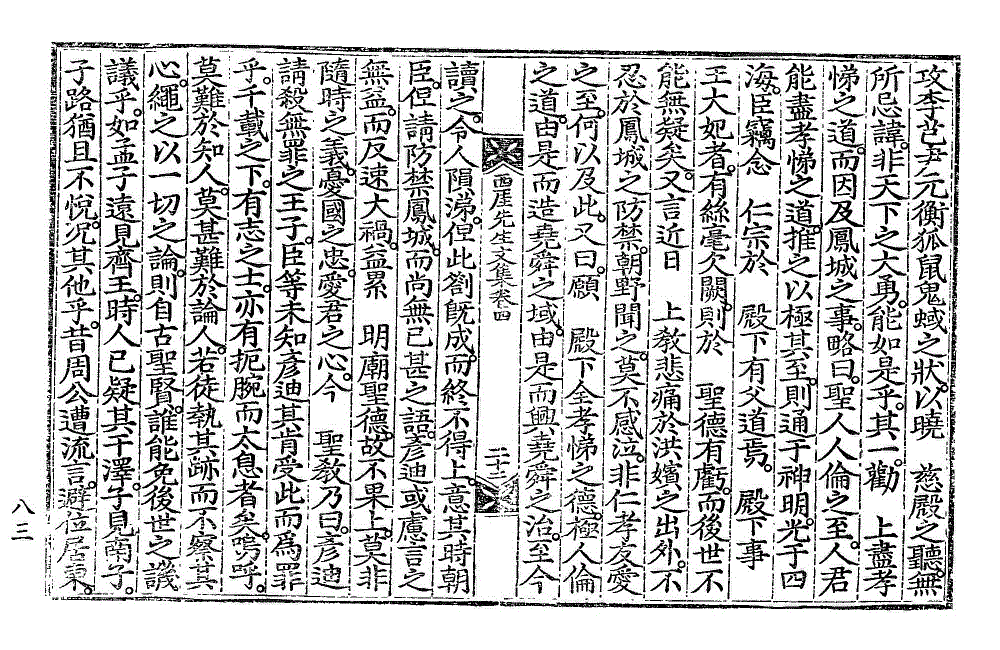 攻李芑尹元衡狐鼠鬼蜮之狀。以曉　慈殿之聽。無
所忌諱。非天下之大勇。能如是乎。其一。勸　上盡孝
悌之道。而因及鳳城之事。略曰。聖人人倫之至。人君
能盡孝悌之道。推之以極其至。則通于神明。光于四
海。臣竊念　仁宗於　殿下有父道焉。　殿下事
王大妃者。有絲毫欠闕。則於　聖德有虧。而後世不
能無疑矣。又言近日　上敎悲痛於洪嬪之出外。不
忍於鳳城之防禁。朝野聞之。莫不感泣。非仁孝友愛
之至。何以及此。又曰。願　殿下全孝悌之德。極人倫
之道。由是而造堯舜之域。由是而興堯舜之治。至今
西厓先生文集卷四
二十二
讀之。令人隕涕。但此劄旣成。而終不得上。意其時朝
臣。但請防禁鳳城。而尙無已甚之語。彥迪或慮言之
無益。而反速大禍。益累　明廟聖德。故不果上。莫非
隨時之義。憂國之忠。愛君之心。今　聖敎乃曰。彥迪
請殺無罪之王子。臣等未知彥迪其肯受此而爲罪
乎。千載之下。有志之士。亦有扼腕而太息者矣。嗚呼。
莫難於知人。莫甚難於論人。若徒執其跡而不察其
心。繩之以一切之論。則自古聖賢。誰能免後世之譏
議乎。如孟子遠見齊王。時人已疑其干澤。子見南子。
子路猶且不悅。況其他乎。昔周公遭流言。避位居東。
八三